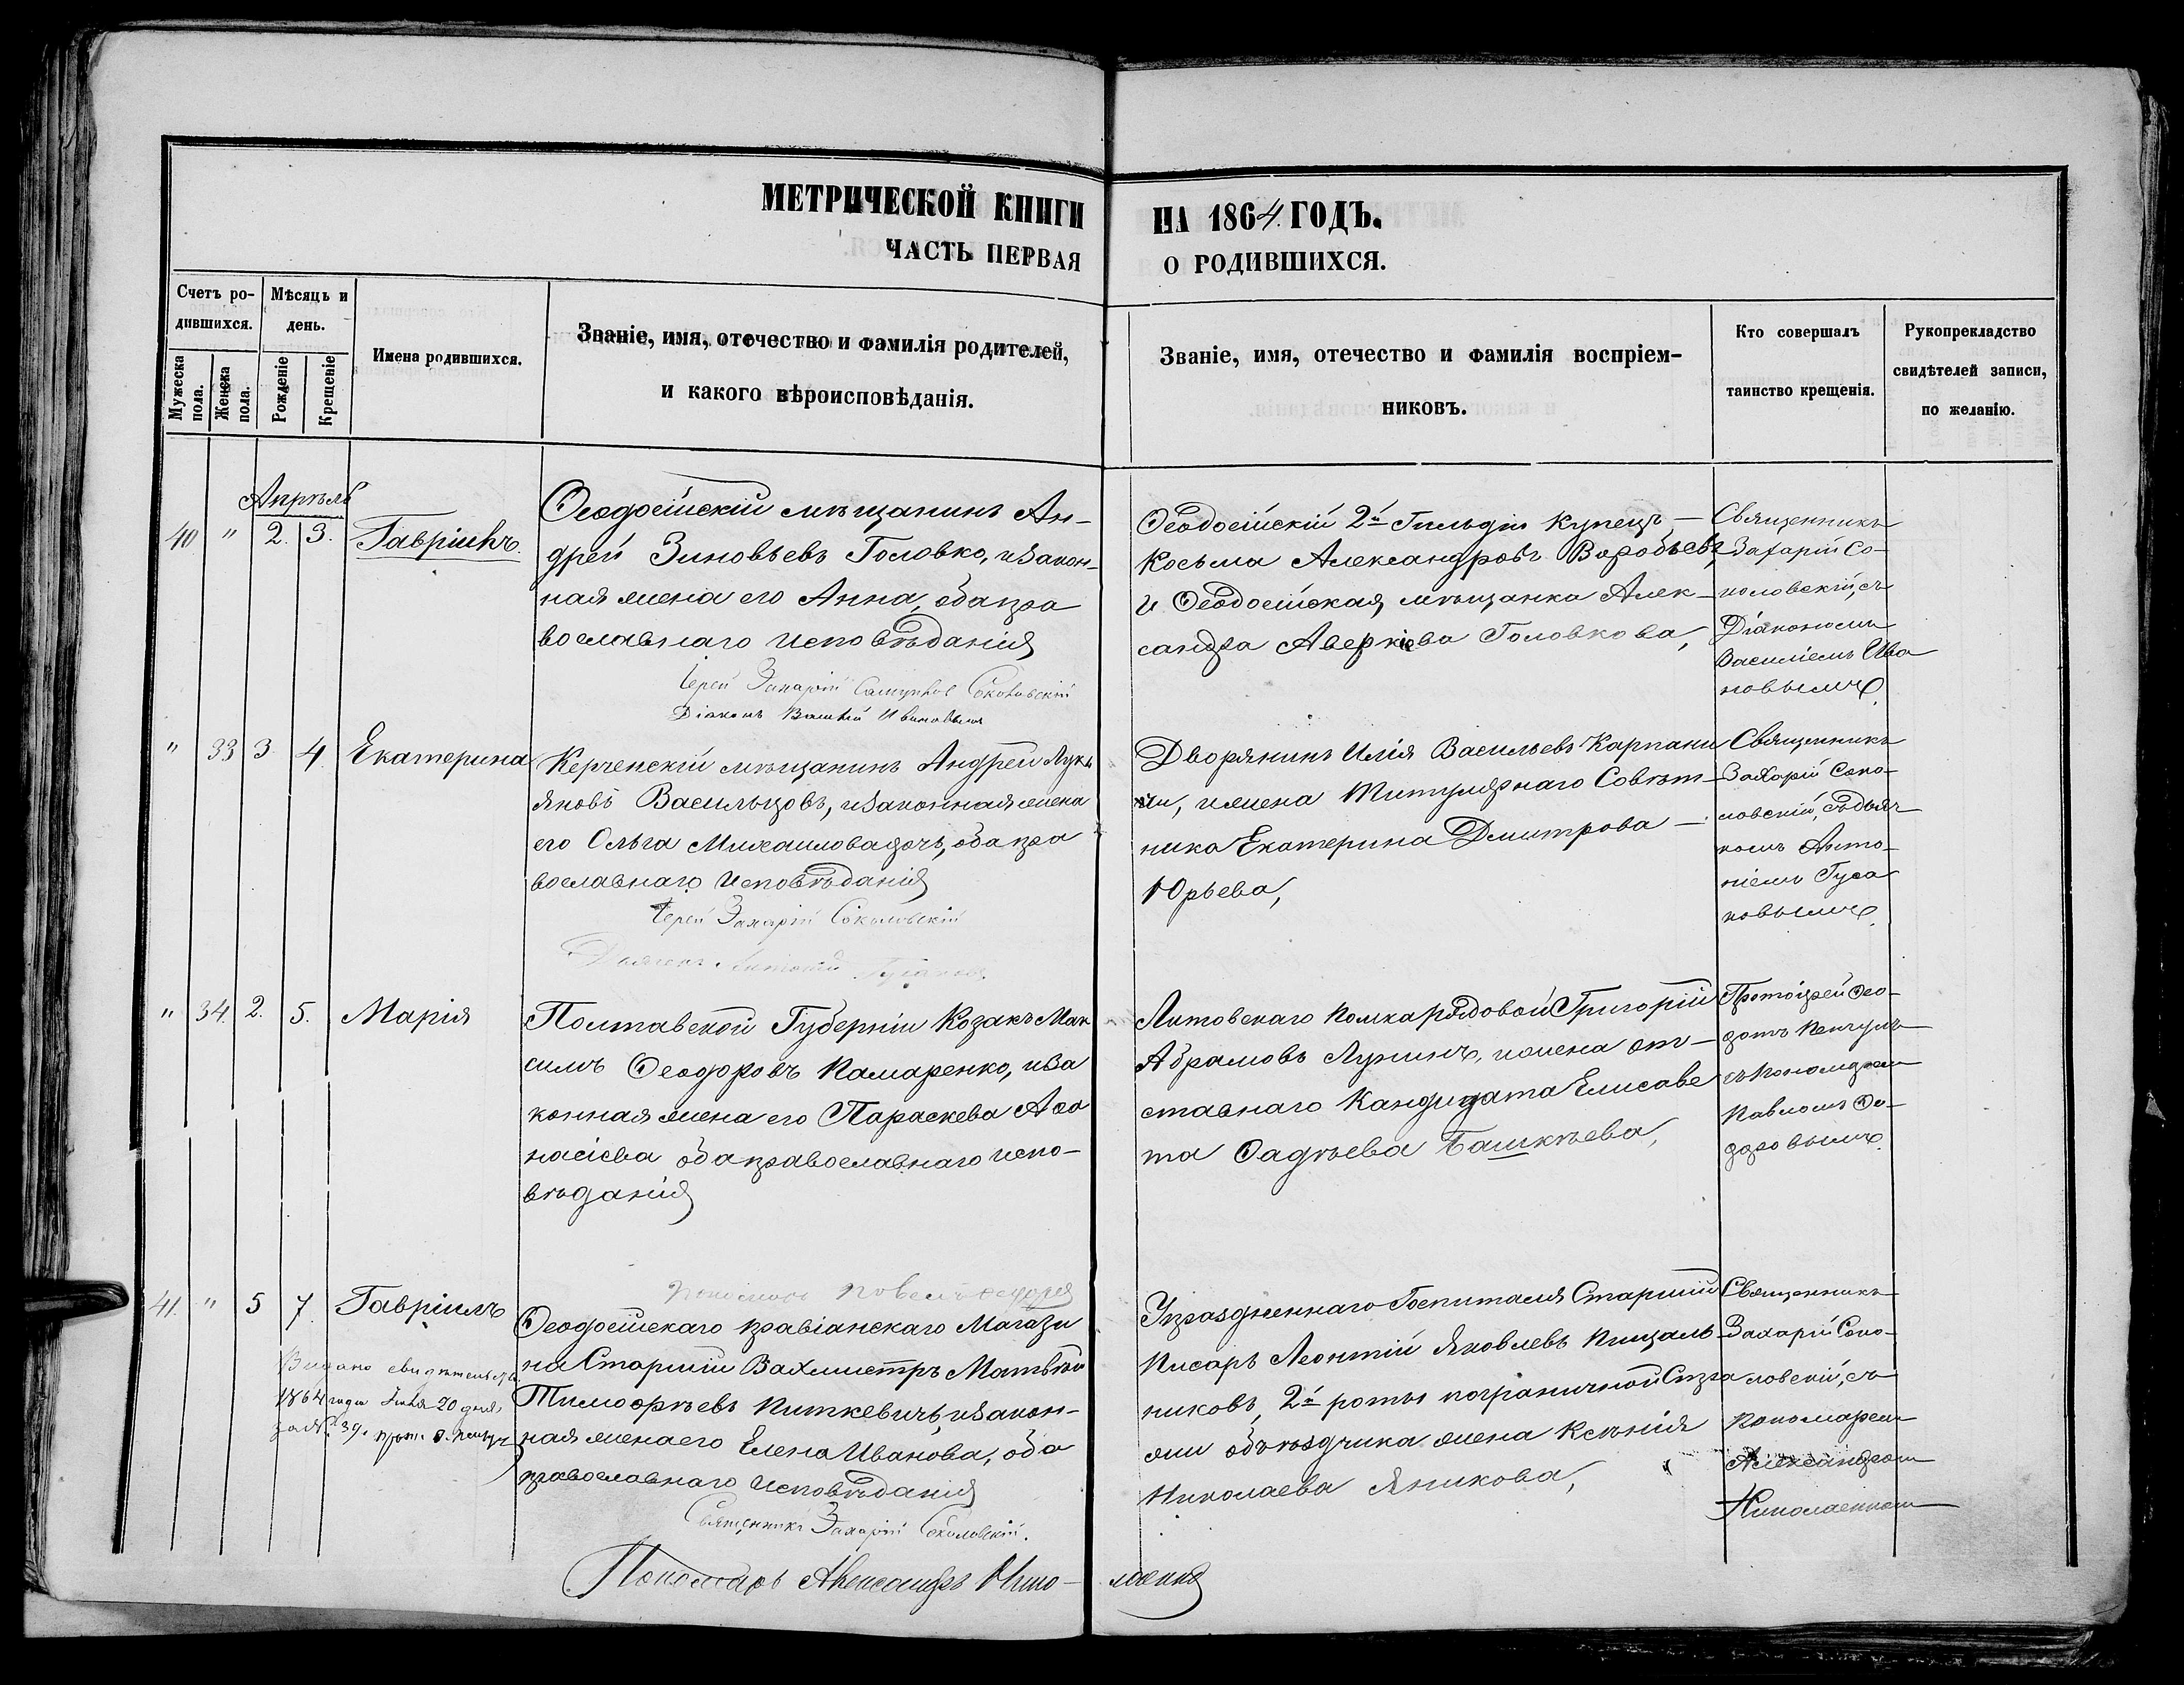 МЕТРИЧЕСКОЙ КНИГИ НА 1864 ГОДЪ.
ЧАСТЬ ПЕРВАЯ О РОДИВШИХСЯ.
Счетъ родившихся.
Мужеска пола.
Женска пола.
Мѣсяцъ и день.
Рожденіе
Крещеніе
Имена родившихся.
Званіе, имя, отечество и фамилія родителей,
и какого вѣроисповѣданія.
Званіе, имя, отечество и фамилія воспріем-
никовъ.
Кто совершалъ
таинство крещенія.
Рукоприкладство
свидѣтелей записи,
по желанію.
Апрѣль
40 " 2. 3. Гавріилъ.
Ѳеодосійскій мѣщанинъ Ан-
дрей Зиновьевъ Головко, и закон-
ная жена его Анна, оба пра
вославнаго исповѣданія
Іерей Захарій Соколовскій
Діаконъ Василій Ивановъ
Ѳеодосійскій 2й Гильдіи купецъ
Косьма Александровъ Воробьевъ,
и Ѳеодосійская мѣщанка Алек-
сандра Аверкіева Головкова,
Священникъ
Захарій Со-
коловскій, съ
Діакономъ
Василіемъ Ива
новымъ
" 33 3 4. Екатерина
Керченскій мѣщанинъ Андрей Лукь
яновъ Васильцовъ, и законная жена
его Ольга Михаилова дочь, оба пра
вославнаго исповѣданія
Іерей Захарій Соколовскій
Дьяконъ Антоній Гусаковъ
Дворянинъ Илія Васильевъ Карпани
и жена Титулярнаго Совѣт-
ника Екатерина Дмитрова
Юрьева,
Священникъ
Захарій Соко-
ловскій, съ дья
кономъ Анто-
ніемъ Гуса
ковымъ
" 34. 2. 5. Марія
Полтавской Губерніи Козакъ Мак
симъ Ѳеодоровъ Камаренко, и за
конная жена его Параскева Аѳа
насіева оба православнаго испо-
вѣданія
Литовскаго полка рядовой Григорій
Абрамовъ Лунинъ, и жена от-
ставнаго Кандидата Елисаве
та Ѳадѣева Башкѣева,
Протоіерей Ѳео-
дотъ
съ пономаремъ
Павломъ Ѳе-
доровымъ
41. " 5 7. Гавріилъ
Выдано свидѣтельство
1864 года 20 дня,
за № 39.
Ѳеодосійскаго провіанскаго Магази
на Старшій Вахмистръ Матвѣй
Тимоѳѣевъ Киткевичъ, и закон-
ная жена его Елена Иванова, оба
православнаго исповѣданія
Священникъ Захарій Соколовскій.
Пономарь Александръ Нико-лаенко
Упраздненнаго Госпиталя Старшій
писарь Леонтій Яковлевъ Пищаль
никовъ, 2й роты пограничной Стра
жи объѣздчика жена Ксенія
Николаева Яникова,
Священникъ
Захарій Соко-
ловскій, съ
пономаремъ
Александромъ
Николаенкомъ